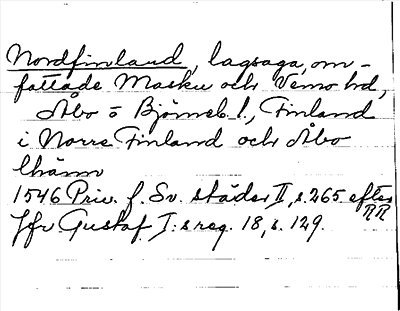 Nordfinland, lagsaga, om-
fattade Masku och Vemo hd,
Åbo o Björneb. l., Finland
i Norra Finland och Åbo
lhämn
1546 Priv. f. Sv. städer II, s. 265 efter
RR
Jfr Gustaf I:s reg. 18, s. 129.